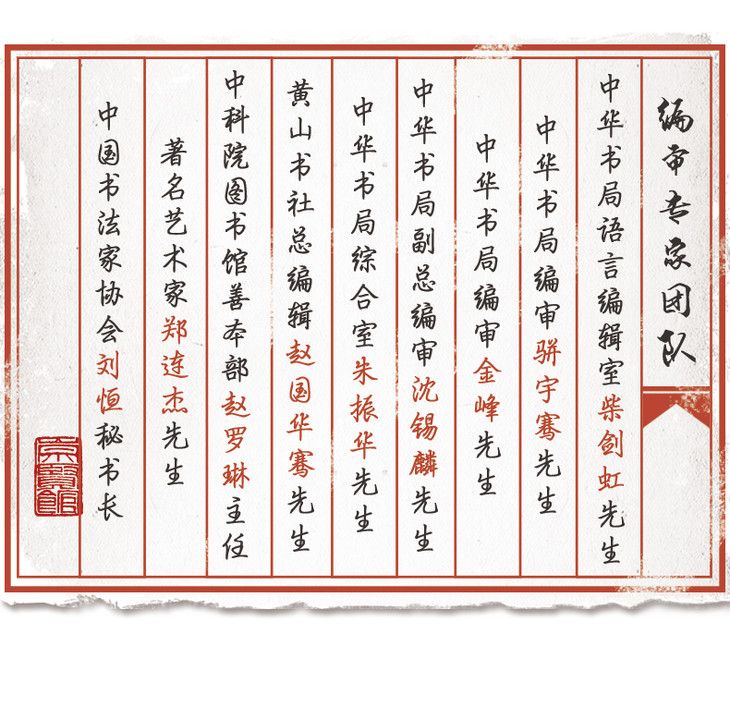 编审专家团队
中华书局语言编辑室柴剑虹先生
中华书局编审骈宇骞先生
中华书局编审金峰先生
中华书局副总编审沈锡麟先生
中华书局综合室朱振华先生
黄山书社总编辑赵国华骞先生
中科院图书馆善本部赵罗琳主任
著名艺术家郑连杰先生
中国书法家协会刘恒秘书长